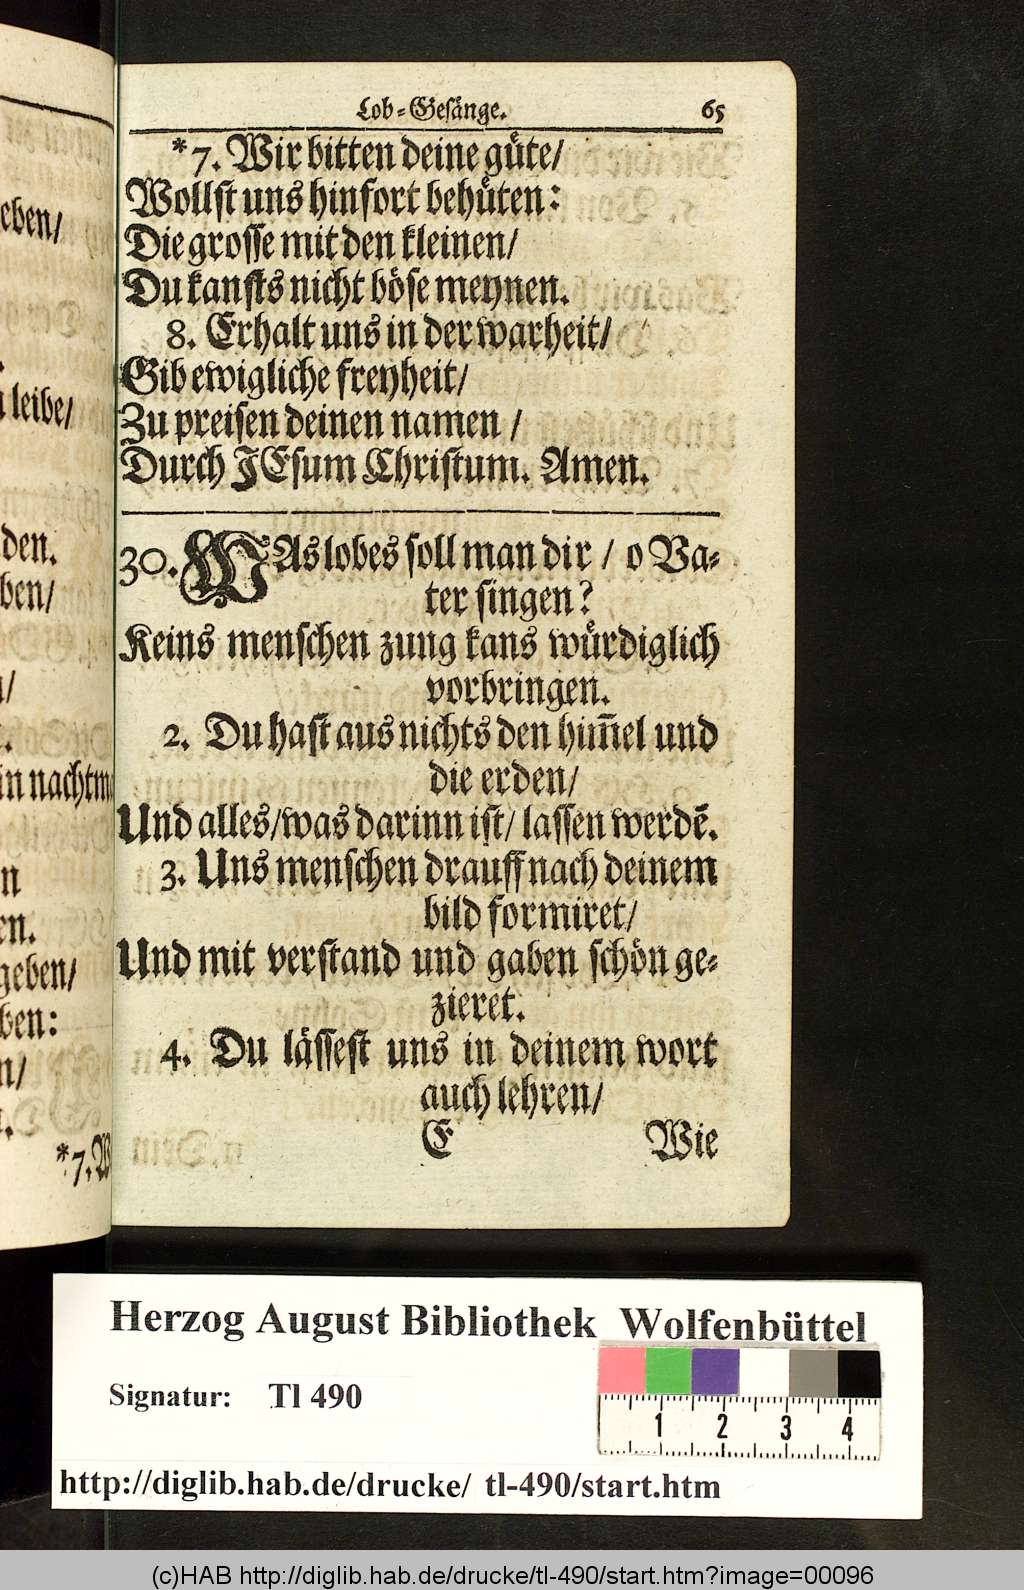 Lob-Gesänge. 65
*7. Wir bitten deine güte/
Wollst uns hinfort behüten:
Die grosse mit den kleinen/
Du kansts nicht böse meynen.
8. Erhalt uns in der warheit/
Gib ewigliche freyheit/
Zu preisen deinen namen /
Durch JEsum Christum. Amen.
30. WAs lobes soll man dir / o Va-
ter singen?
Keins menschen zung kans würdiglich
vorbringen.
2. Du hast aus nichts den him̃el und
die erden/
Und alles/was darinn ist/ lassen werdẽ.
3. Uns menschen drauff nach deinem
bild formiret/
Und mit verstand und gaben schön ge-
zieret.
4. Du lässest uns in deinem wort
auch lehren/
E Wie
eben/
leibe/
den.
ben/
in nachtm
geben/
ben:
*7. W
Herzog August Bibliothek Wolfenbüttel
Signatur: Tl 490
1 2 3 4
http://diglib.hab.de/drucke/ tl-490/start.htm
(c)HAB http://diglib.hab.de/drucke/tl-490/start.htm?image=00096